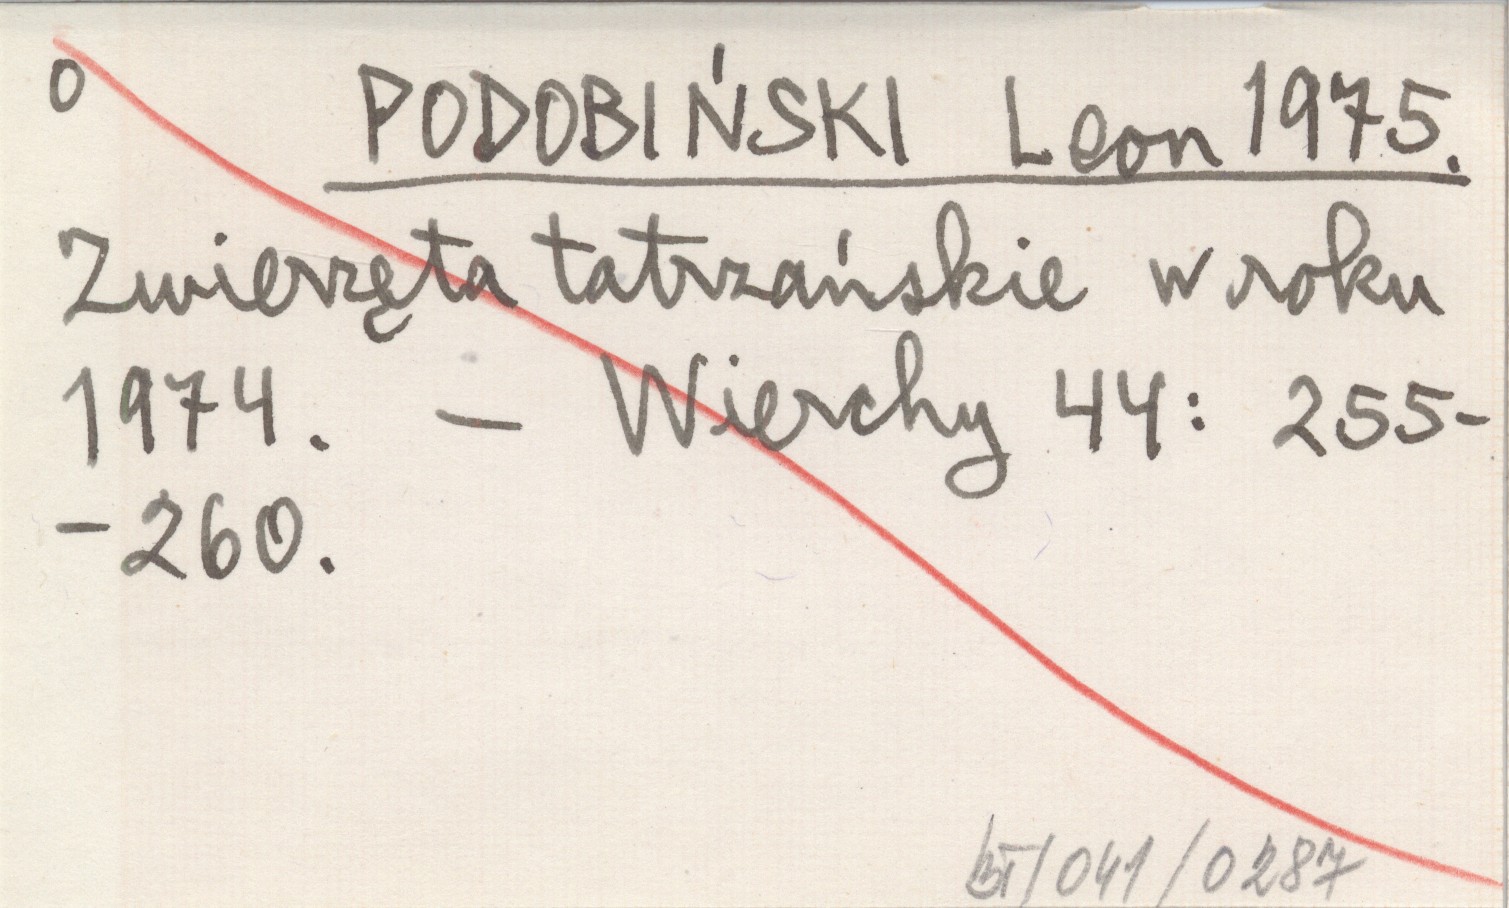 0
PODOBIŃSKI Leon 1975.
Zwierzęta tatrzańskie w roku
1974. – Wierchy 44: 255-
-260.
BT/041/0287